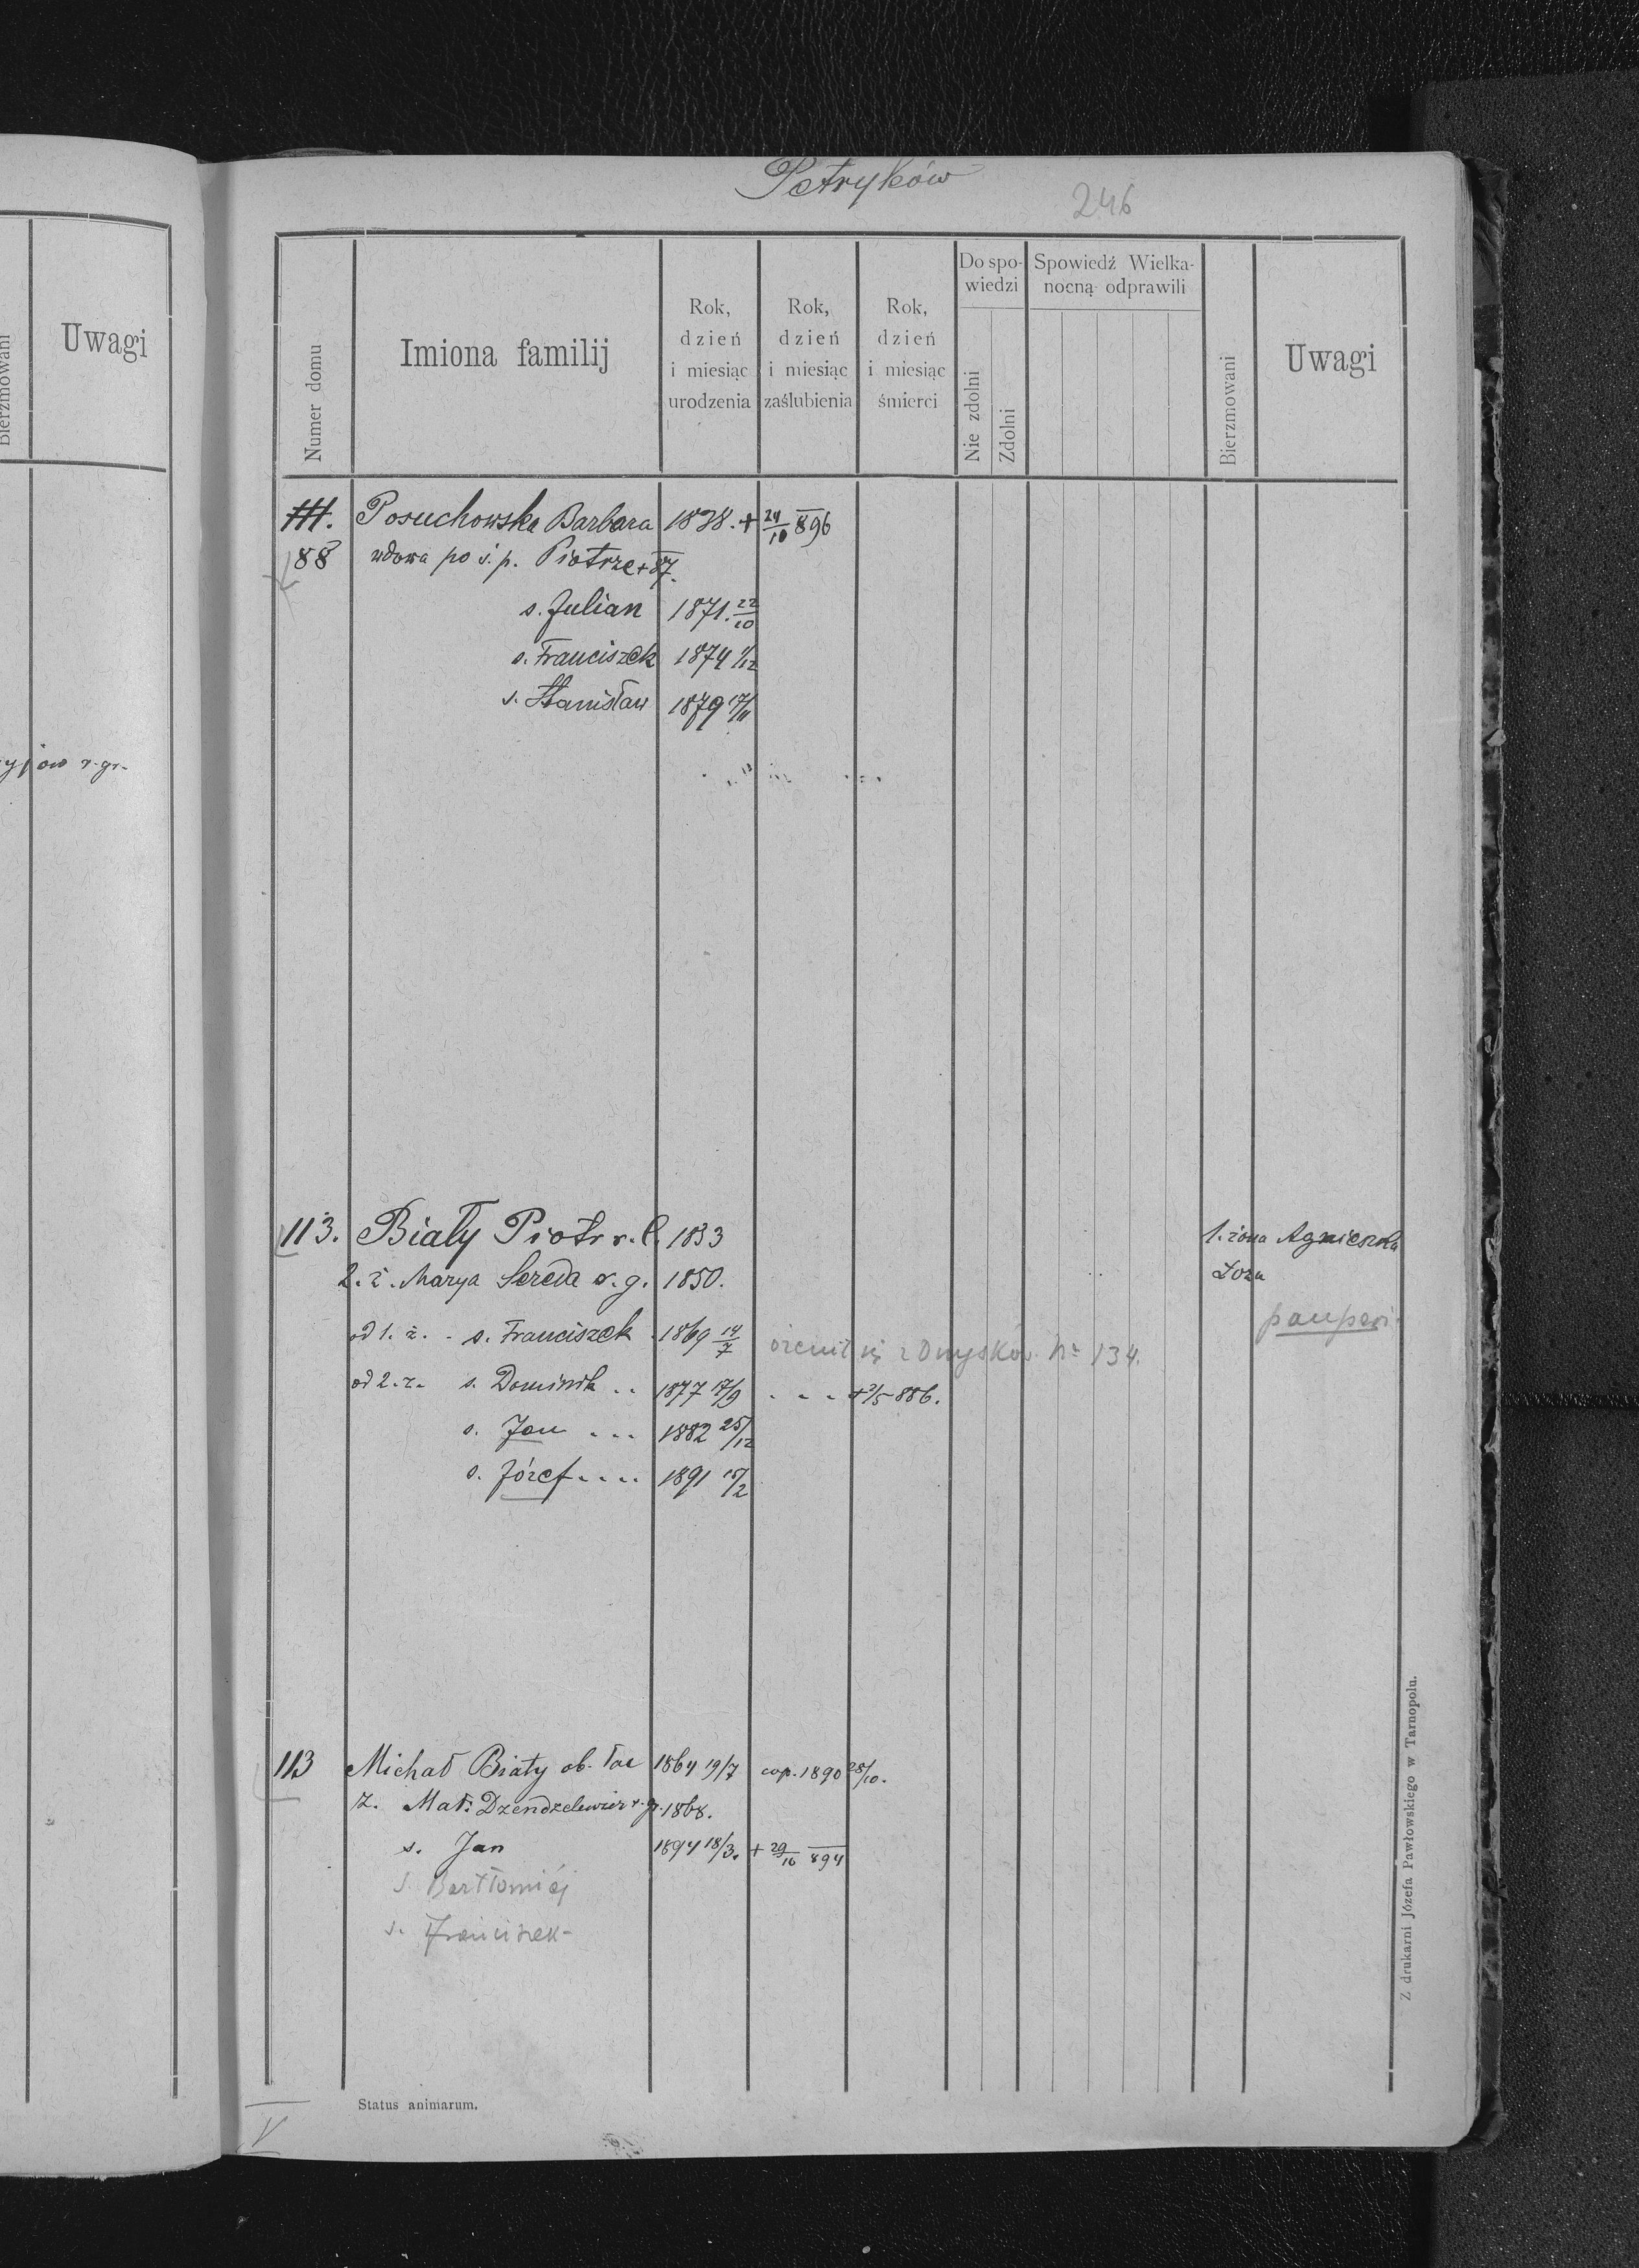 Petryków
246
Bierzmowani
Uwagi
yjów r. gr.
Numer domu
Imiona familij
Rok, dzień i miesiąc urodzenia
Rok, dzień i miesiąc zaślubienia
Rok, dzień i miesiąc śmierci
Do spowiedzi
Nie zdolni
Zdolni
Spowiedź Wielkanocną odprawili
Bierzmowani
Uwagi
111. Posuchowska Barbara 1838. + 24/10 896
88 wdowa po ś. p. Piotrze + 87.
s. Julian 1871. 22/10
s. Franciszek 1874 4/12
s. Stanisław 1879 17/11
113. Biały Piotr r. l. 1833 1. żona Agnieszka
2. ż. Marya Sereda r. g. 1850. Łoza
pauperi
od 1. ż. - s. Franciszek 1869 14/7 ożenił się z Dnysków Nr 134.
od 2. ż. s. Dominik .. 1877 17/9 . . . + 3/5 886.
s. Jan ... 1882 25/12
s. Józef .... 1891 15/2
113 Michał Biały ob. łac 1864 19/7 cop. 1890 28/10.
ż. Mał: r. gr. 1868.
s. Jan 1894 18/3. + 29/10 894
s. Bartłomiéj
s. Franciszek -
Z drukarni Józefa Pawłowskiego w Tarnopolu.
Status animarum.
V